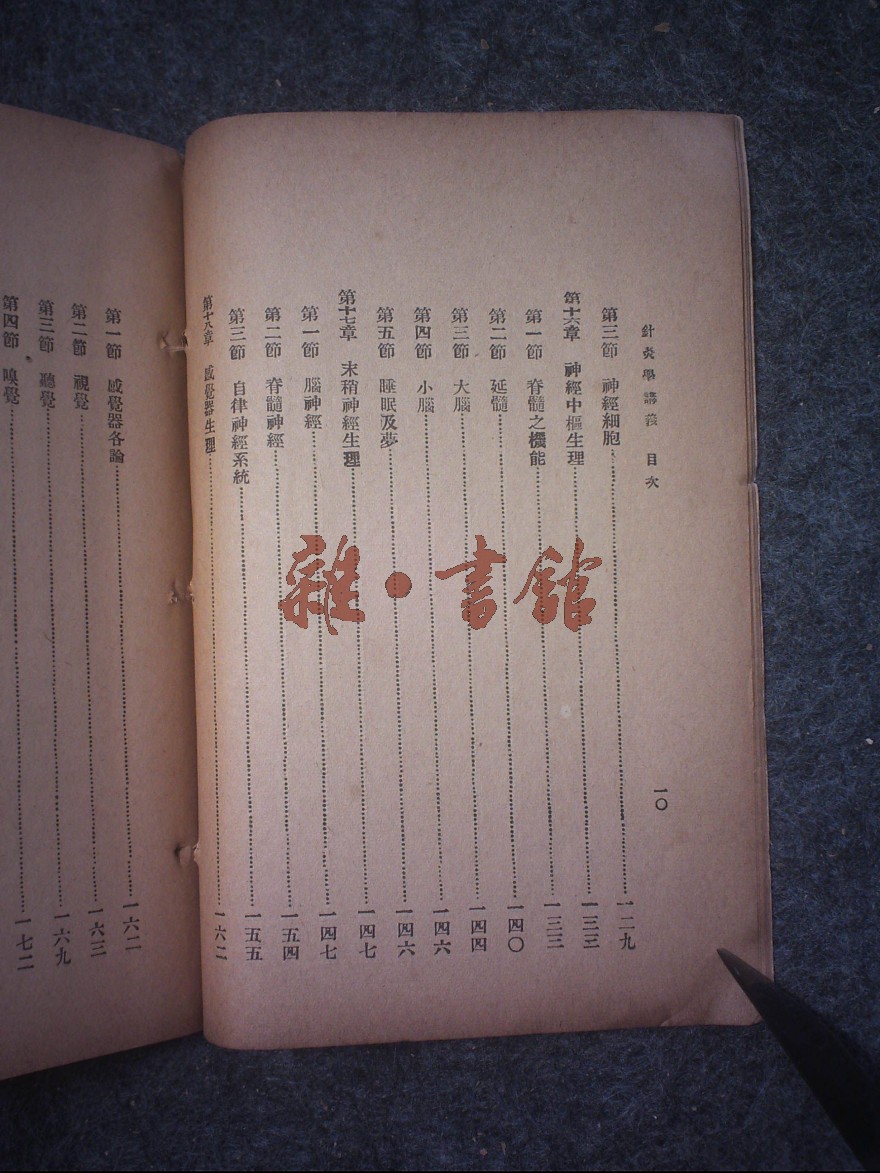 針灸學講義 目次
一〇
第三節 神經細胞 一二九
第十六章 神經中樞生理 一三三
第一節 脊髓之機能 一三三
第二節 延髓 一四〇
第三節 大腦 一四四
第四節 小腦 一四六
第五節 睡眠及夢 一四六
第十七章 末稍神經生理 一四七
第一節 腦神經 一四七
第二節 脊髓神經 一五四
第三節 自律神經系統 一五五
第十八章 感覺器生理 一六二
第一節 感覺器各論 一六二
第二節 視覺 一六三
第三節 聽覺 一六九
第四節 嗅覺 一七二
雜·書館